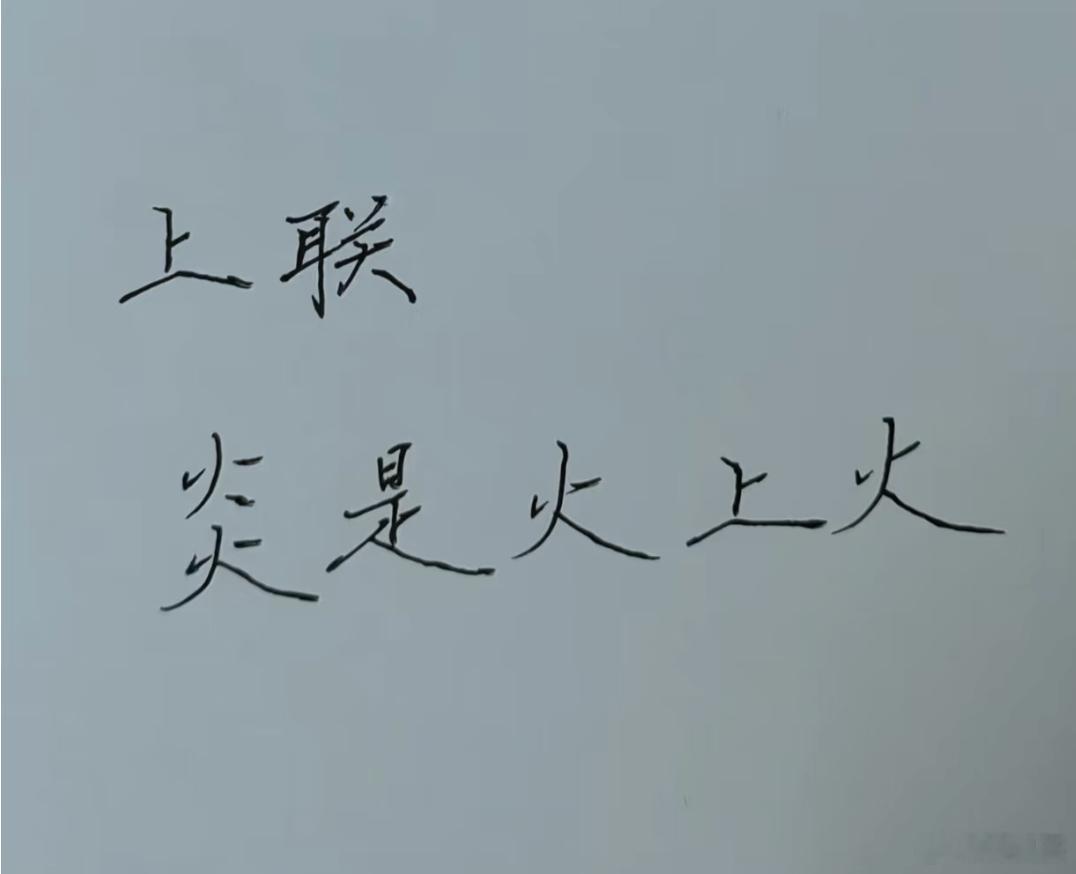 上联
炎是火上火